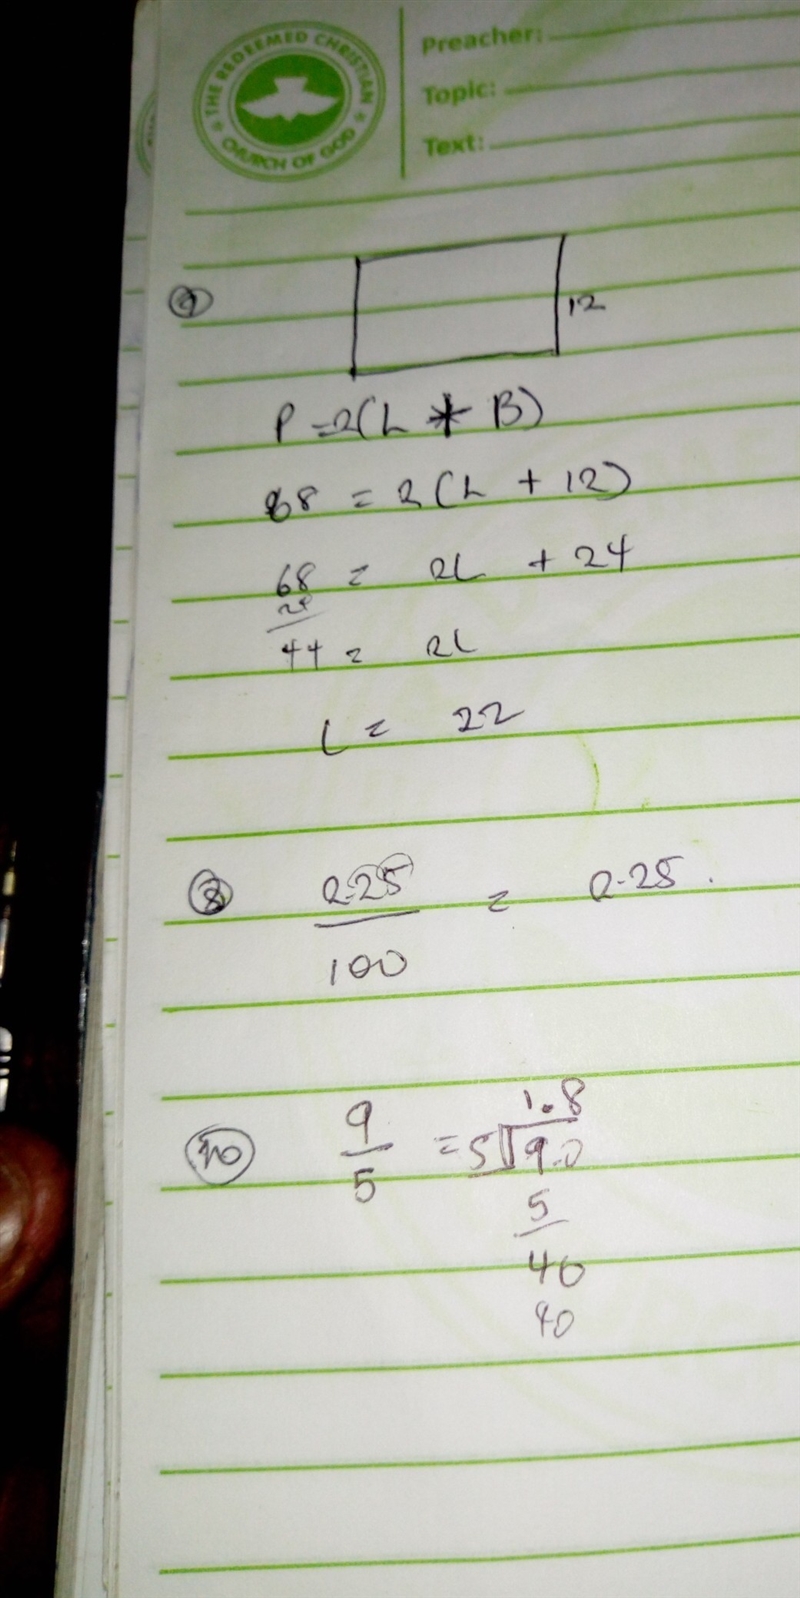 THE REDEEMED CHRISTIAN
CHURCH OF GOD
Preacher:
Topic:
Text:
12
P = 2(L + B)
68 = 2(L + 12)
68 = 2L + 24
24
44 = 2L
L = 22
8
2.25 = 2.25
100
10
1.8
9 = 5 9.0
5
5
40
40